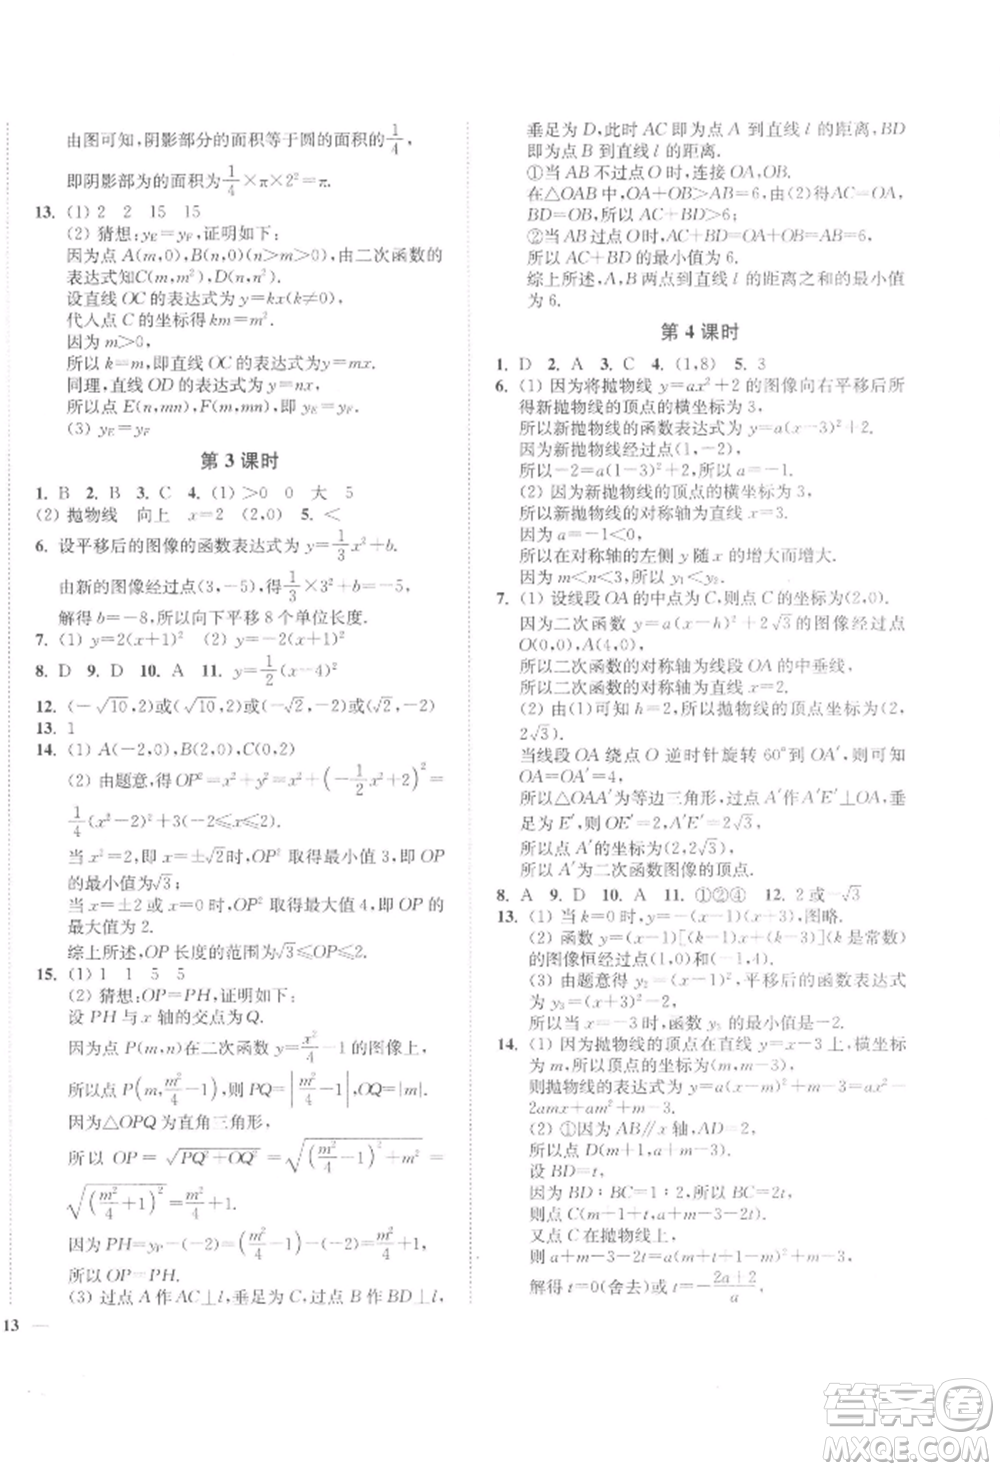 由图可知,阴影部分的面积等于圆的面积的$\frac{1}{4}$,
即阴影部为的面积为$\frac{1}{4}$×π×2²=π.
13. (1) 2 2 15 15
(2) 猜想:$y_E=y_F$,证明如下:
因为点A(m,0),B(n,0)(n>m>0),由二次函数的
表达式知C(m,m²),D(n,n²).
设直线OC的表达式为y=kx(k≠0),
代人点C的坐标得km=m².
因为m>0,
所以k=m,即直线OC的表达式为y=mx.
同理,直线OD的表达式为y=nx,
所以点E(n,mn),F(m,mn),即$y_E=y_F$.
(3) $y_E=y_F$
第3课时
1. B 2. B 3. C 4. (1)>0 0 大 5
(2) 抛物线 向上 x=2 (2,0) 5. <
6. 设平移后的图像的函数表达式为y=$\frac{1}{3}$x²+b.
由新的图像经过点(3,-5),得$\frac{1}{3}$×3²+b=-5,
解得b=-8,所以向下平移8个单位长度.
7. (1) y=2(x+1)² (2) y=-2(x+1)²
8. D 9. D 10. A 11. y=$\frac{1}{2}$(x-4)²
12. (-√10,2)或(√10,2)或(-√2,-2)或(√2,-2)
13. 1
14. (1) A(-2,0),B(2,0),C(0,2)
(2) 由题意,得OP²=x²+y²=x²+$\left(-\frac{1}{2}x^2+2\right)^2$=
$\frac{1}{4}$(x²-2)²+3(-2≤x≤2).
当x²=2,即x=±√2时,OP²取得最小值3,即OP
的最小值为√3;
当x=±2或x=0时,OP²取得最大值4,即OP的
最大值为2.
综上所述,OP长度的范围为√3≤OP≤2.
15. (1) 1 1 5 5
(2) 猜想:OP=PH,证明如下:
设PH与x轴的交点为Q.
因为点P(m,n)在二次函数y=$\frac{x^2}{4}$-1的图像上,
所以点P$\left(m,\frac{m^2}{4}-1\right)$,则PQ=$\left|\frac{m^2}{4}-1\right|$,OQ=|m|.
因为△OPQ为直角三角形,
所以OP=$\sqrt{PQ^2+OQ^2}$=$\sqrt{\left(\frac{m^2}{4}-1\right)^2+m^2}$=
$\sqrt{\left(\frac{m^2}{4}+1\right)^2}$=$\frac{m^2}{4}$+1.
因为PH=$y_P$-(-2)=$\left(\frac{m^2}{4}-1\right)$-(-2)=$\frac{m^2}{4}$+1,
所以OP=PH.
(3) 过点A作AC⊥l,垂足为C,过点B作BD⊥l,
13
垂足为D,此时AC即为点A到直线l的距离,BD
即为点B到直线l的距离.
①当AB不过点O时,连接OA,OB.
在△OAB中,OA+OB>AB=6,由(2)得AC=OA,
BD=OB,所以AC+BD>6;
②当AB过点O时,AC+BD=OA+OB=AB=6,
所以AC+BD的最小值为6.
综上所述,A,B两点到直线l的距离之和的最小值
为6.
第4课时
1. D 2. A 3. C 4. (1,8) 5. 3
6. (1) 因为将抛物线y=ax²+2的图像向右平移后所
得新抛物线的顶点的横坐标为3,
所以新抛物线的函数表达式为y=a(x-3)²+2.
因为新抛物线经过点(1,-2),
所以-2=a(1-3)²+2,解得a=-1.
(2) 因为新抛物线的顶点的横坐标为3,
所以新抛物线的对称轴为直线x=3.
因为a=-1<0,
所以在对称轴的左侧y随x的增大而增大.
因为m<n<3,所以y₁<y₂.
7. (1) 设线段OA的中点为C,则点C的坐标为(2,0).
因为二次函数y=a(x-h)²+2√3的图像经过点
O(0,0),A(4,0),
所以二次函数的对称轴为线段OA的中垂线,
所以二次函数的对称轴为直线x=2.
(2) 由(1)可知h=2,所以抛物线的顶点坐标为(2,
2√3).
当线段OA绕点O逆时针旋转60°到OA′,可知
OA=OA′=4,
所以△OAA′为等边三角形,过点A′作A′E′⊥OA,垂
足为E′,则OE′=2,A′E′=2√3,
所以点A′的坐标为(2,2√3),
所以A′为二次函数图像的顶点.
8. A 9. D 10. A 11. ①②④ 12. 2或-√3
13. (1) 当k=0时,y=-(x-1)(x+3),图略.
(2) 函数y=(x-1)[(k-1)x+(k-3)](k是常数)
的图像恒经过点(1,0)和(-1,-2).
(3) 由题意得y₂=(x-1)²,平移后的函数表达式
为y₃=(x+3)²-2,
所以当x=-3时,函数y₃的最小值是-2.
14. (1) 因为抛物线的顶点在直线y=x-3上,横坐标
为m,所以顶点的坐标为(m,m-3),
则抛物线的表达式为y=a(x-m)²+m-3=ax²-
2amx+am²+m-3.
(2) ①因为AB∥x轴,AB=2,
所以点D(m+1,a+m-3).
设BD=t,
因为BD:BC=1:2,所以BC=2t,
则点C(m+1+t,a+m-3-2t).
又点C在抛物线上,
则a+m-3-2t=a(m+1+t-m)²+m-3,
解得t=0(舍去)或t=-$\frac{2a+2}{a}$,
答案卷
MXQE.COM